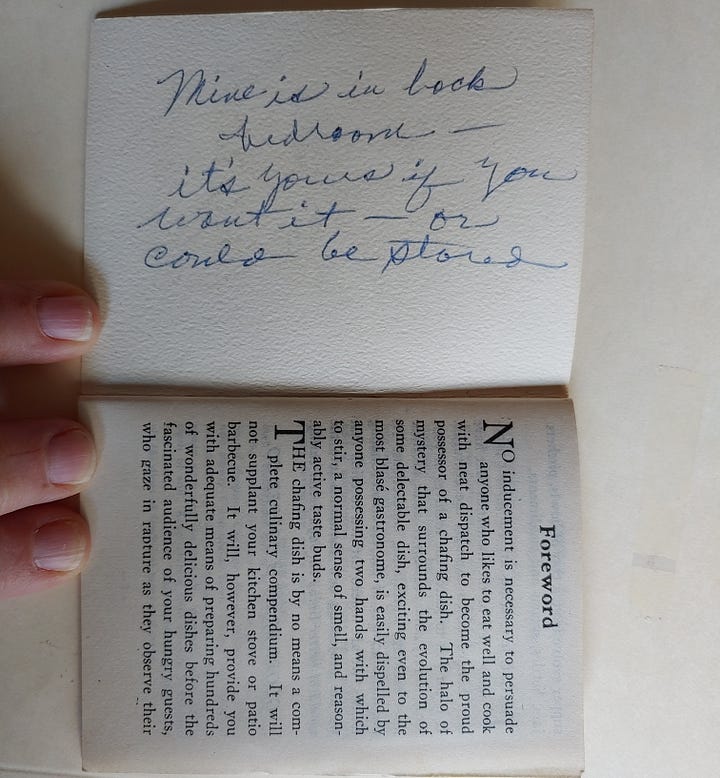 Mine is in back
bedroom —
it's yours if you
want it — or
could be stored
Foreword
NO inducement is necessary to persuade
anyone who likes to eat well and cook
with neat dispatch to become the proud
possessor of a chafing dish. The halo of
mystery that surrounds the evolution of
some delectable dish, exciting even to the
most blasé gastronome, is easily dispelled by
anyone possessing two hands with which
to stir, a normal sense of smell, and reason-
ably active taste buds.
THE chafing dish is by no means a com-
plete culinary compendium. It will
not supplant your kitchen stove or patio
barbecue. It will, however, provide you
with adequate means of preparing hundreds
of wonderfully delicious dishes before the
fascinated audience of your hungry guests,
who gaze in rapture as they observe their